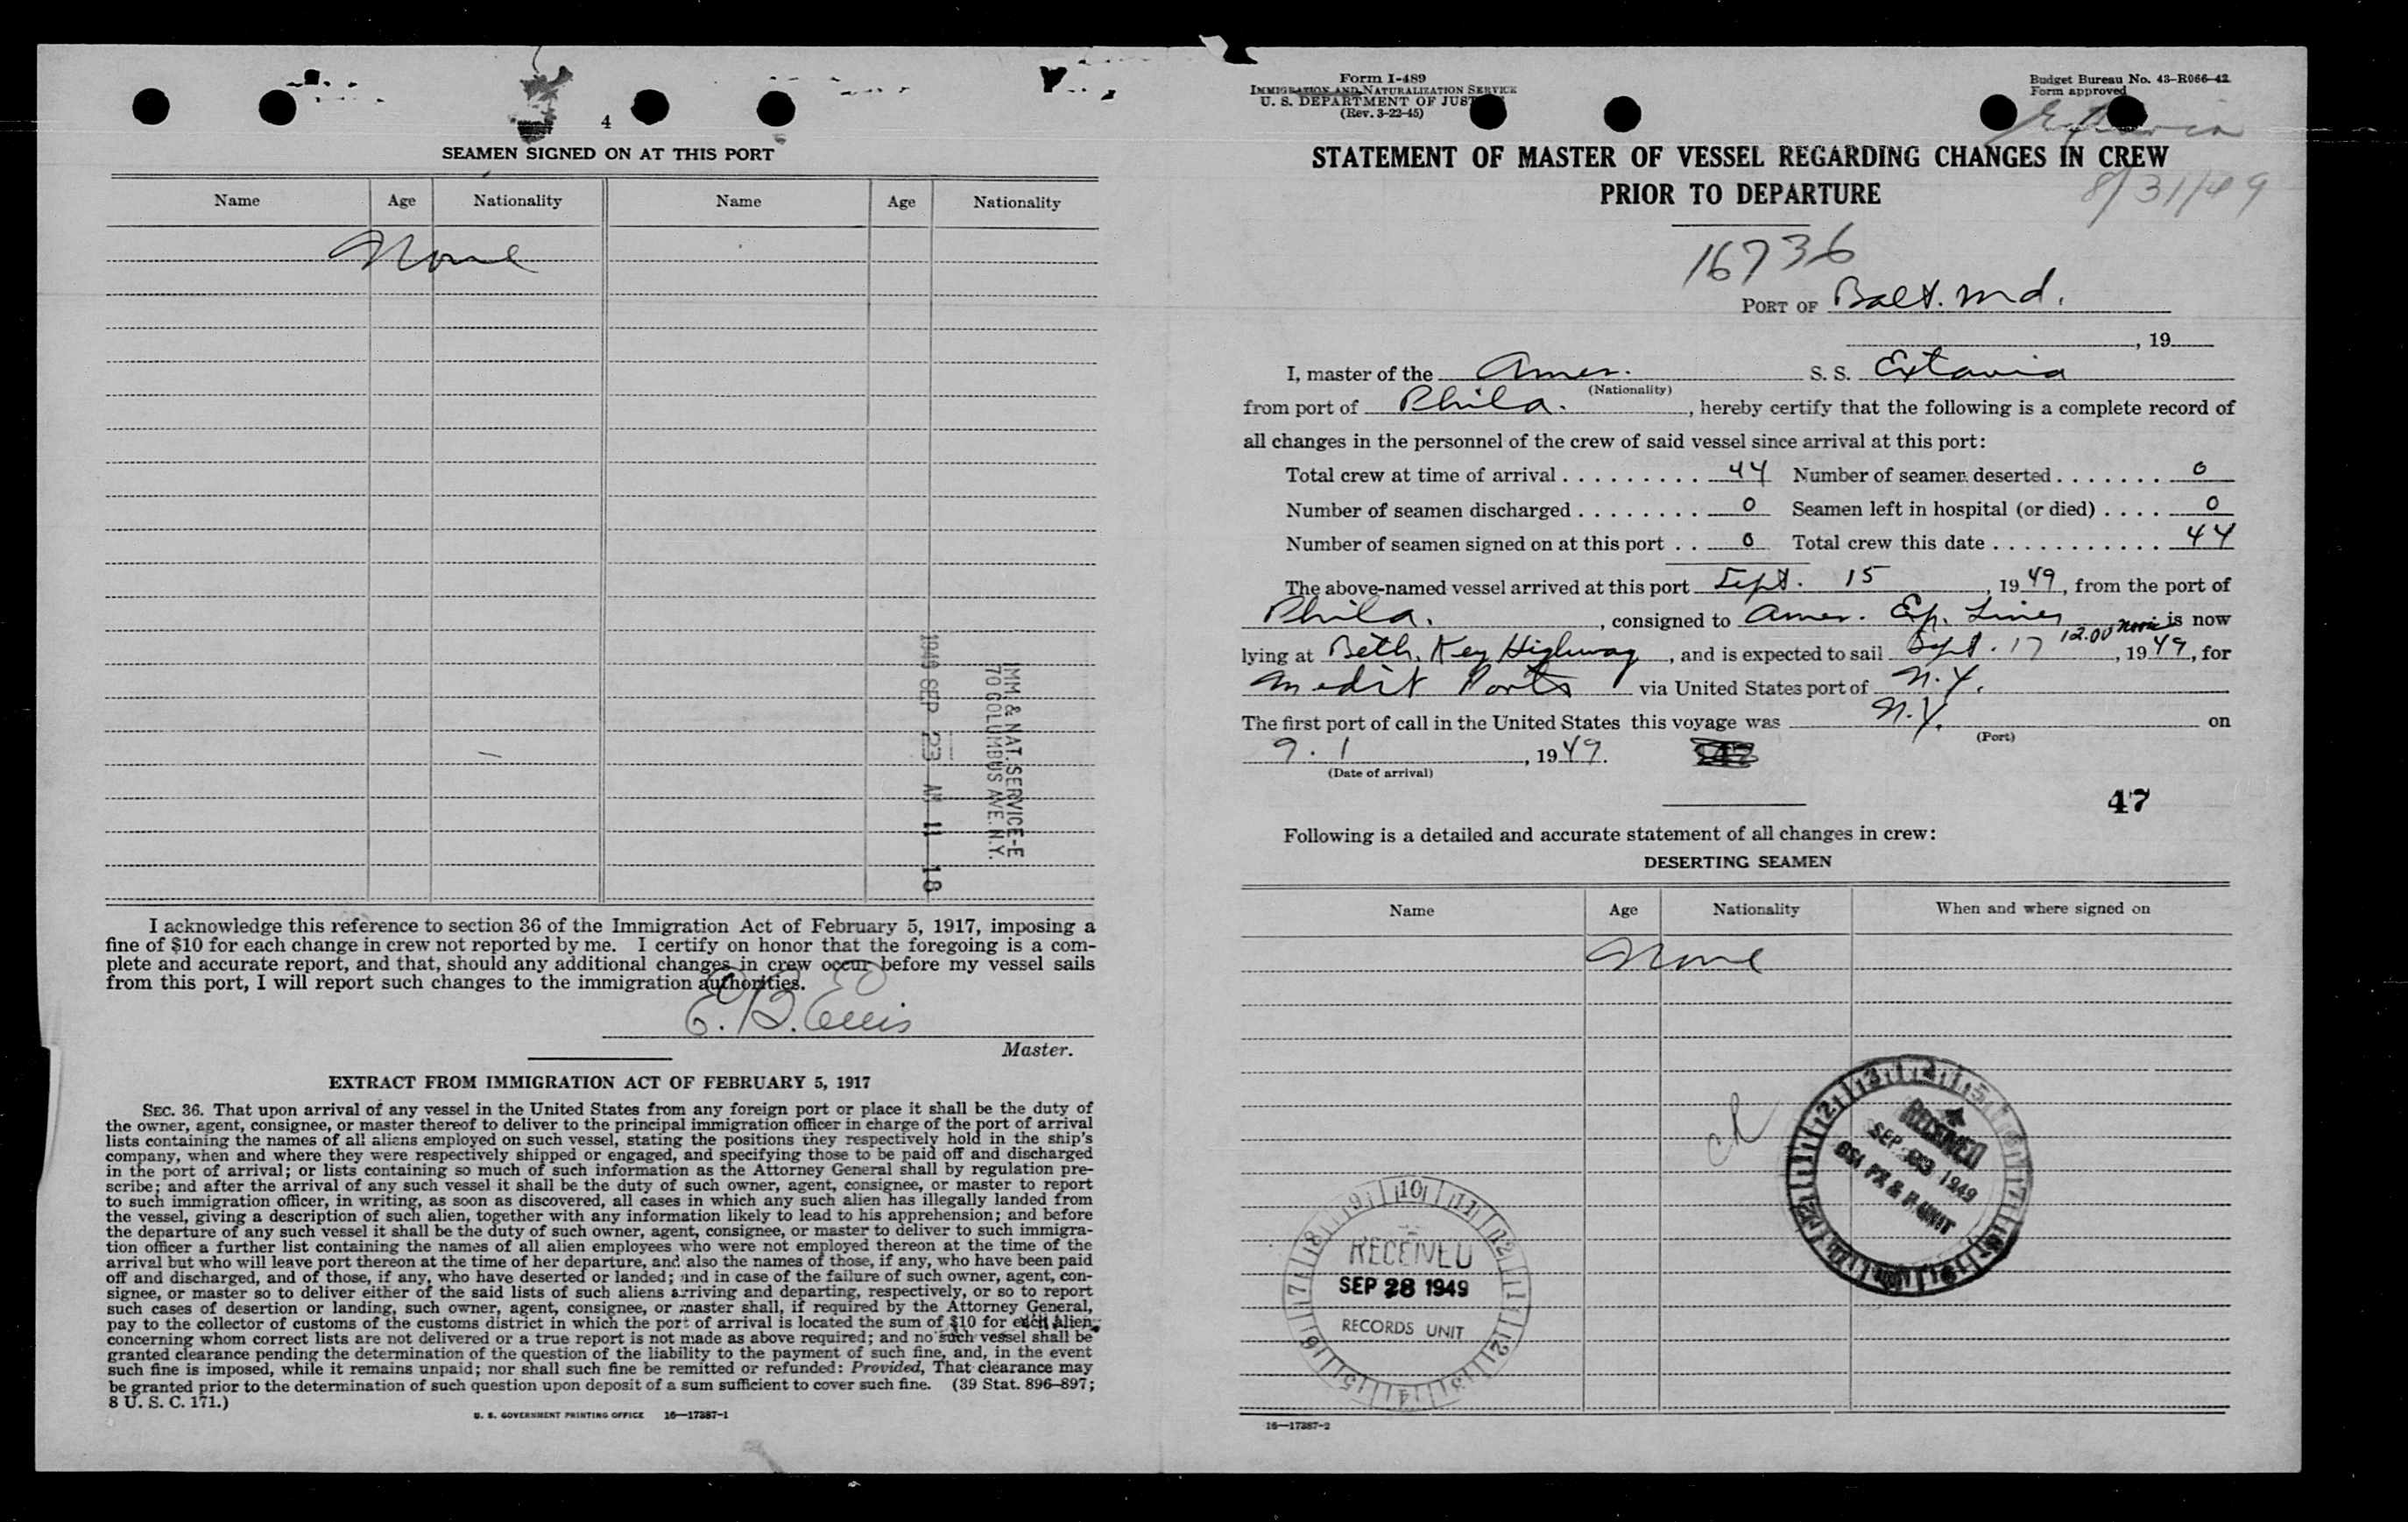 4
SEAMEN SIGNED ON AT THIS PORT
Name Age Nationality Name Age Nationality
None
1949 SEP 23 AM 11 18
IMM. & NAT. SERVICE-E
70 COLUMBUS AVE. N.Y.
I acknowledge this reference to section 36 of the Immigration Act of February 5, 1917, imposing a
fine of $10 for each change in crew not reported by me. I certify on honor that the foregoing is a com-
plete and accurate report, and that, should any additional changes in crew occur before my vessel sails
from this port, I will report such changes to the immigration authorities.
E. B. Ellis
Master.
EXTRACT FROM IMMIGRATION ACT OF FEBRUARY 5, 1917
SEC. 36. That upon arrival of any vessel in the United States from any foreign port or place it shall be the duty of
the owner, agent, consignee, or master thereof to deliver to the principal immigration officer in charge of the port of arrival
lists containing the names of all aliens employed on such vessel, stating the positions they respectively hold in the ship's
company, when and where they were respectively shipped or engaged, and specifying those to be paid off and discharged
in the port of arrival; or lists containing so much of such information as the Attorney General shall by regulation pre-
scribe; and after the arrival of any such vessel it shall be the duty of such owner, agent, consignee, or master to report
to such immigration officer, in writing, as soon as discovered, all cases in which any such alien has illegally landed from
the vessel, giving a description of such alien, together with any information likely to lead to his apprehension; and before
the departure of any such vessel it shall be the duty of such owner, agent, consignee, or master to deliver to such immigra-
tion officer a further list containing the names of all alien employees who were not employed thereon at the time of the
arrival but who will leave port thereon at the time of her departure, and also the names of those, if any, who have been paid
off and discharged, and of those, if any, who have deserted or landed; and in case of the failure of such owner, agent, con-
signee, or master so to deliver either of the said lists of such aliens arriving and departing, respectively, or so to report
such cases of desertion or landing, such owner, agent, consignee, or master shall, if required by the Attorney General,
pay to the collector of customs of the customs district in which the port of arrival is located the sum of $10 for each alien
concerning whom correct lists are not delivered or a true report is not made as above required; and no such vessel shall be
granted clearance pending the determination of the question of the liability to the payment of such fine, and, in the event
such fine is imposed, while it remains unpaid; nor shall such fine be remitted or refunded: Provided, That clearance may
be granted prior to the determination of such question upon deposit of a sum sufficient to cover such fine. (39 Stat. 896-897;
8 U. S. C. 171.)
U. S. GOVERNMENT PRINTING OFFICE 16—17387-1
Form I-489
IMMIGRATION AND NATURALIZATION SERVICE
U. S. DEPARTMENT OF JUST
(Rev. 3-22-45)
Budget Bureau No. 43-R066-42
Form approved
Extavia
8/31/49
STATEMENT OF MASTER OF VESSEL REGARDING CHANGES IN CREW
PRIOR TO DEPARTURE
16736
PORT OF Balt. Md.
, 19
I, master of the Amer. S. S. Extavia
(Nationality)
from port of Phila. , hereby certify that the following is a complete record of
all changes in the personnel of the crew of said vessel since arrival at this port:
Total crew at time of arrival . . . . . . . . . 44 Number of seamen deserted . . . . . . . 0
Number of seamen discharged . . . . . . . . 0 Seamen left in hospital (or died) . . . . 0
Number of seamen signed on at this port . . 0 Total crew this date . . . . . . . . . . . 44
The above-named vessel arrived at this port Sept. 15 , 1949, from the port of
Phila. , consigned to Amer. Exp. Lines is now
lying at Beth. Key Highway , and is expected to sail Sept. 17 12.00 Noon , 1949, for
Medit Ports via United States port of N.Y.
The first port of call in the United States this voyage was N.Y. on
(Port)
9.1 , 1949.
(Date of arrival)
47
Following is a detailed and accurate statement of all changes in crew:
DESERTING SEAMEN
Name Age Nationality When and where signed on
None
RECEIVED
SEP 1949
RECEIVED
SEP 28 1949
RECORDS UNIT
16—17387-2